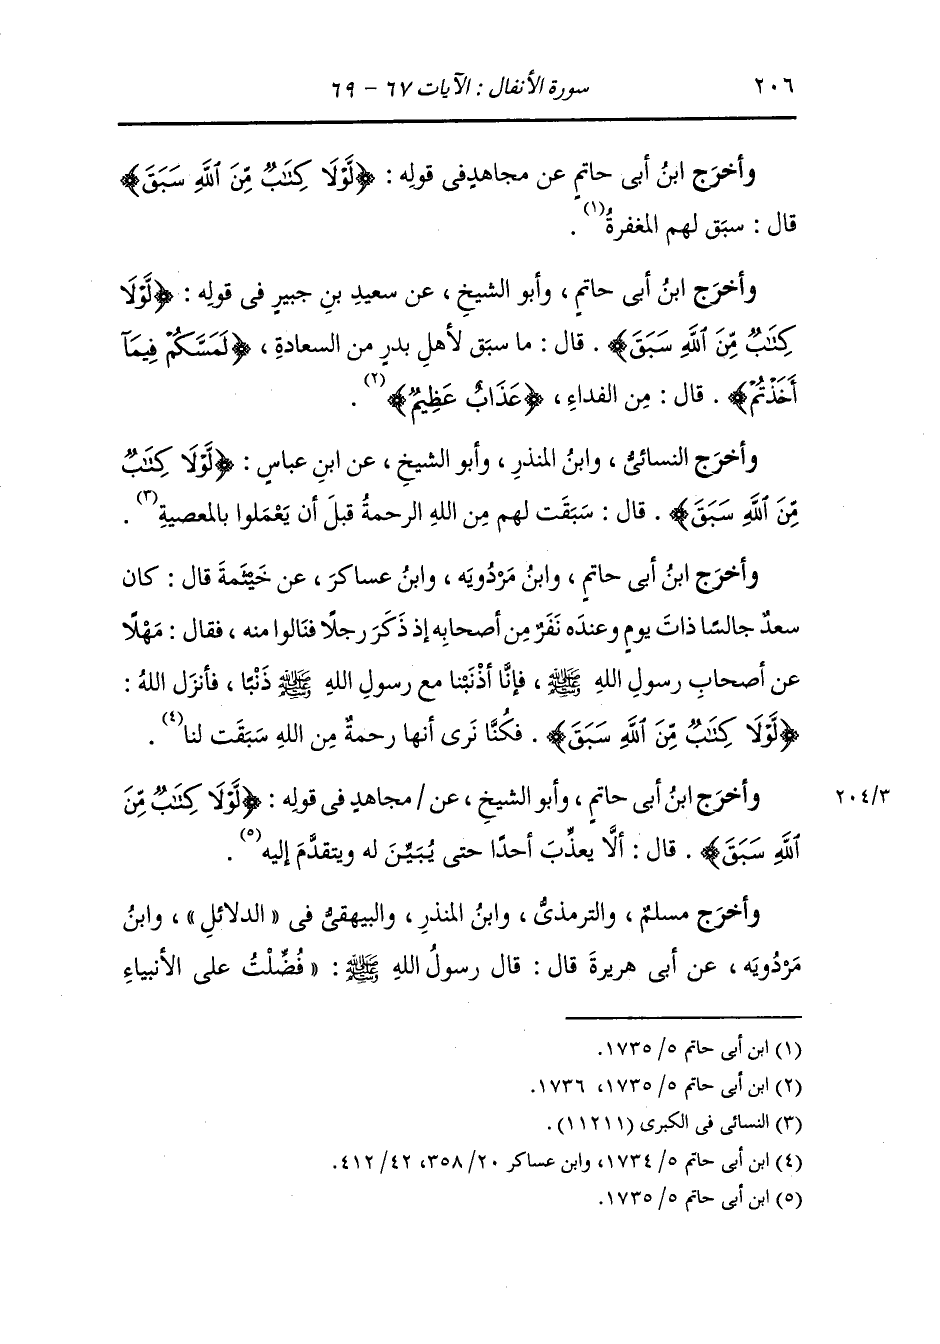 ٢٠٦ سورة الأنفال : الآيات ٦٧ - ٦٩
وأخرَج ابنُ أبى حاتمٍ عن مجاهدٍ فى قولِه : ﴿لَّوْلَا كِتَٰبٌ مِّنَ ٱللَّهِ سَبَقَ﴾
قال : سبَق لهم المغفرةُ(١) .
وأخرَج ابنُ أبى حاتمٍ ، وأبو الشيخِ ، عن سعيدِ بنِ جبيرٍ فى قولِه : ﴿لَّوْلَا
كِتَٰبٌ مِّنَ ٱللَّهِ سَبَقَ﴾ . قال : ما سبَق لأهلِ بدرٍ من السعادةِ ، ﴿لَمَسَّكُمْ فِيمَآ
أَخَذْتُمْ﴾ . قال : مِن الفداءِ ، ﴿عَذَابٌ عَظِيمٌ﴾(٢) .
وأخرَج النسائىُّ ، وابنُ المنذرِ ، وأبو الشيخِ ، عن ابنِ عباسٍ : ﴿لَّوْلَا كِتَٰبٌ
مِّنَ ٱللَّهِ سَبَقَ﴾ . قال : سَبَقَت لهم مِن اللهِ الرحمةُ قبلَ أن يَعْمَلوا بالمعصيةِ(٣) .
وأخرَج ابنُ أبى حاتمٍ ، وابنُ مَرْدُويَه ، وابنُ عساكرَ ، عن خَيْثَمةَ قال : كان
سعدٌ جالسًا ذاتَ يومٍ وعندَه نَفَرٌ مِن أصحابِه إذ ذَكَرَ رجلًا فنَالوا منه ، فقال : مَهْلًا
عن أصحابِ رسولِ اللهِ ﷺ ، فإنَّا أذْنَبْنا مع رسولِ اللهِ ﷺ ذَنْبًا ، فأنزَل اللهُ :
﴿لَّوْلَا كِتَٰبٌ مِّنَ ٱللَّهِ سَبَقَ﴾ . فكُنَّا نَرى أنها رحمةٌ مِن اللهِ سَبَقَت لنا(٤) .
وأخرَج ابنُ أبى حاتمٍ ، وأبو الشيخِ ، عن / مجاهدٍ فى قولِه : ﴿لَّوْلَا كِتَٰبٌ مِّنَ ٢٠٤/٣
ٱللَّهِ سَبَقَ﴾ . قال : ألَّا يعذِّبَ أحدًا حتى يُبَيِّنَ له ويتقدَّمَ إليه(٥) .
وأخرَج مسلمٌ ، والترمذىُّ ، وابنُ المنذرِ ، والبيهقىُّ فى « الدلائلِ » ، وابنُ
مَرْدُويَه ، عن أبى هريرةَ قال : قال رسولُ اللهِ ﷺ : « فُضِّلْتُ على الأنبياءِ
(١) ابن أبى حاتم ٥/ ١٧٣٥.
(٢) ابن أبى حاتم ٥/ ١٧٣٥، ١٧٣٦.
(٣) النسائى فى الكبرى (١١٢١١).
(٤) ابن أبى حاتم ٥/ ١٧٣٤، وابن عساكر ٢٠/ ٣٥٨، ٤٢/ ٤١٢.
(٥) ابن أبى حاتم ٥/ ١٧٣٥.